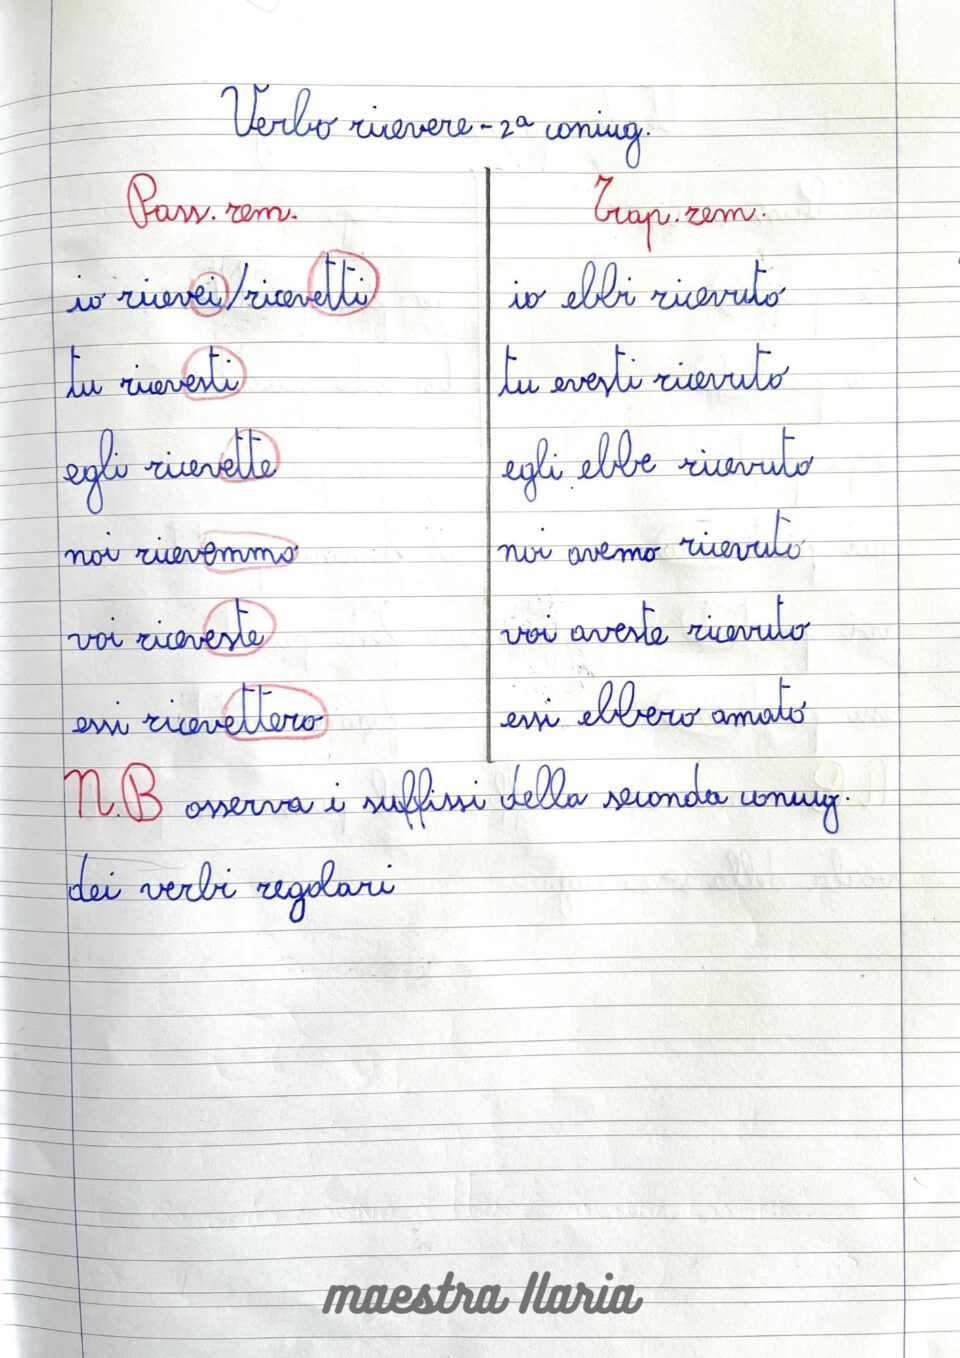 Verbo ricevere - 2ª coniug.
Pass. rem. Trap. rem.
io ricevei/ricevetti io ebbi ricevuto
tu ricevesti tu evesti ricevuto
egli ricevette egli ebbe ricevuto
noi ricevemmo noi avemo ricevuto
voi riceveste voi aveste ricevuto
essi ricevettero essi ebbero amato
N.B osserva i suffissi della seconda coniug.
dei verbi regolari
maestra Ilaria